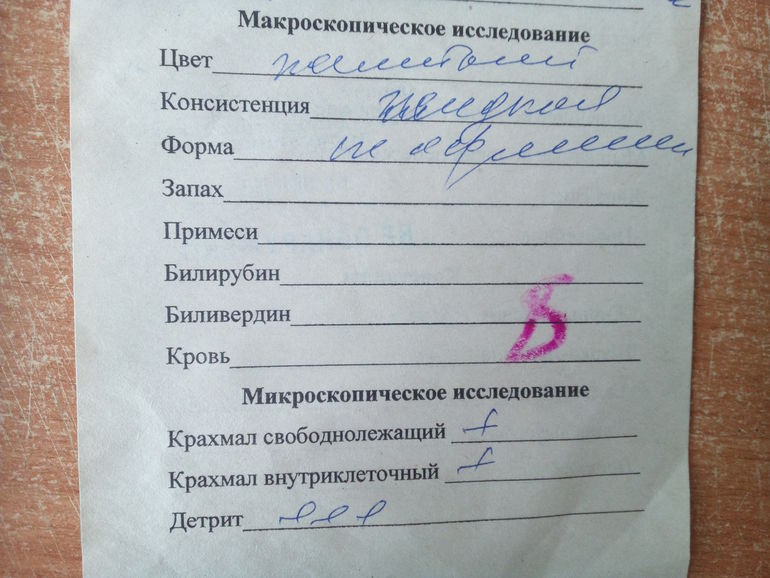 Макроскопическое исследование
Цвет
Консистенция жидкая
Форма не оформлен
Запах
Примеси
Билирубин
Биливердин
Кровь
Микроскопическое исследование
Крахмал свободнолежащий +
Крахмал внутриклеточный +
Детрит +++